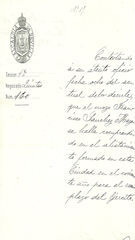 Nº 1º
Sección 1ª
Negociado Quintas
Núm. 160
Contestando
a su atento oficio
fecha ocho del ac-
tual debo decirle
que el mozo Fran-
cisco Sanchez
se halla comprendi-
do en el alistamien-
to formado en esta
Ciudad en el corrien-
te año para el reem-
plazo del Ejército.